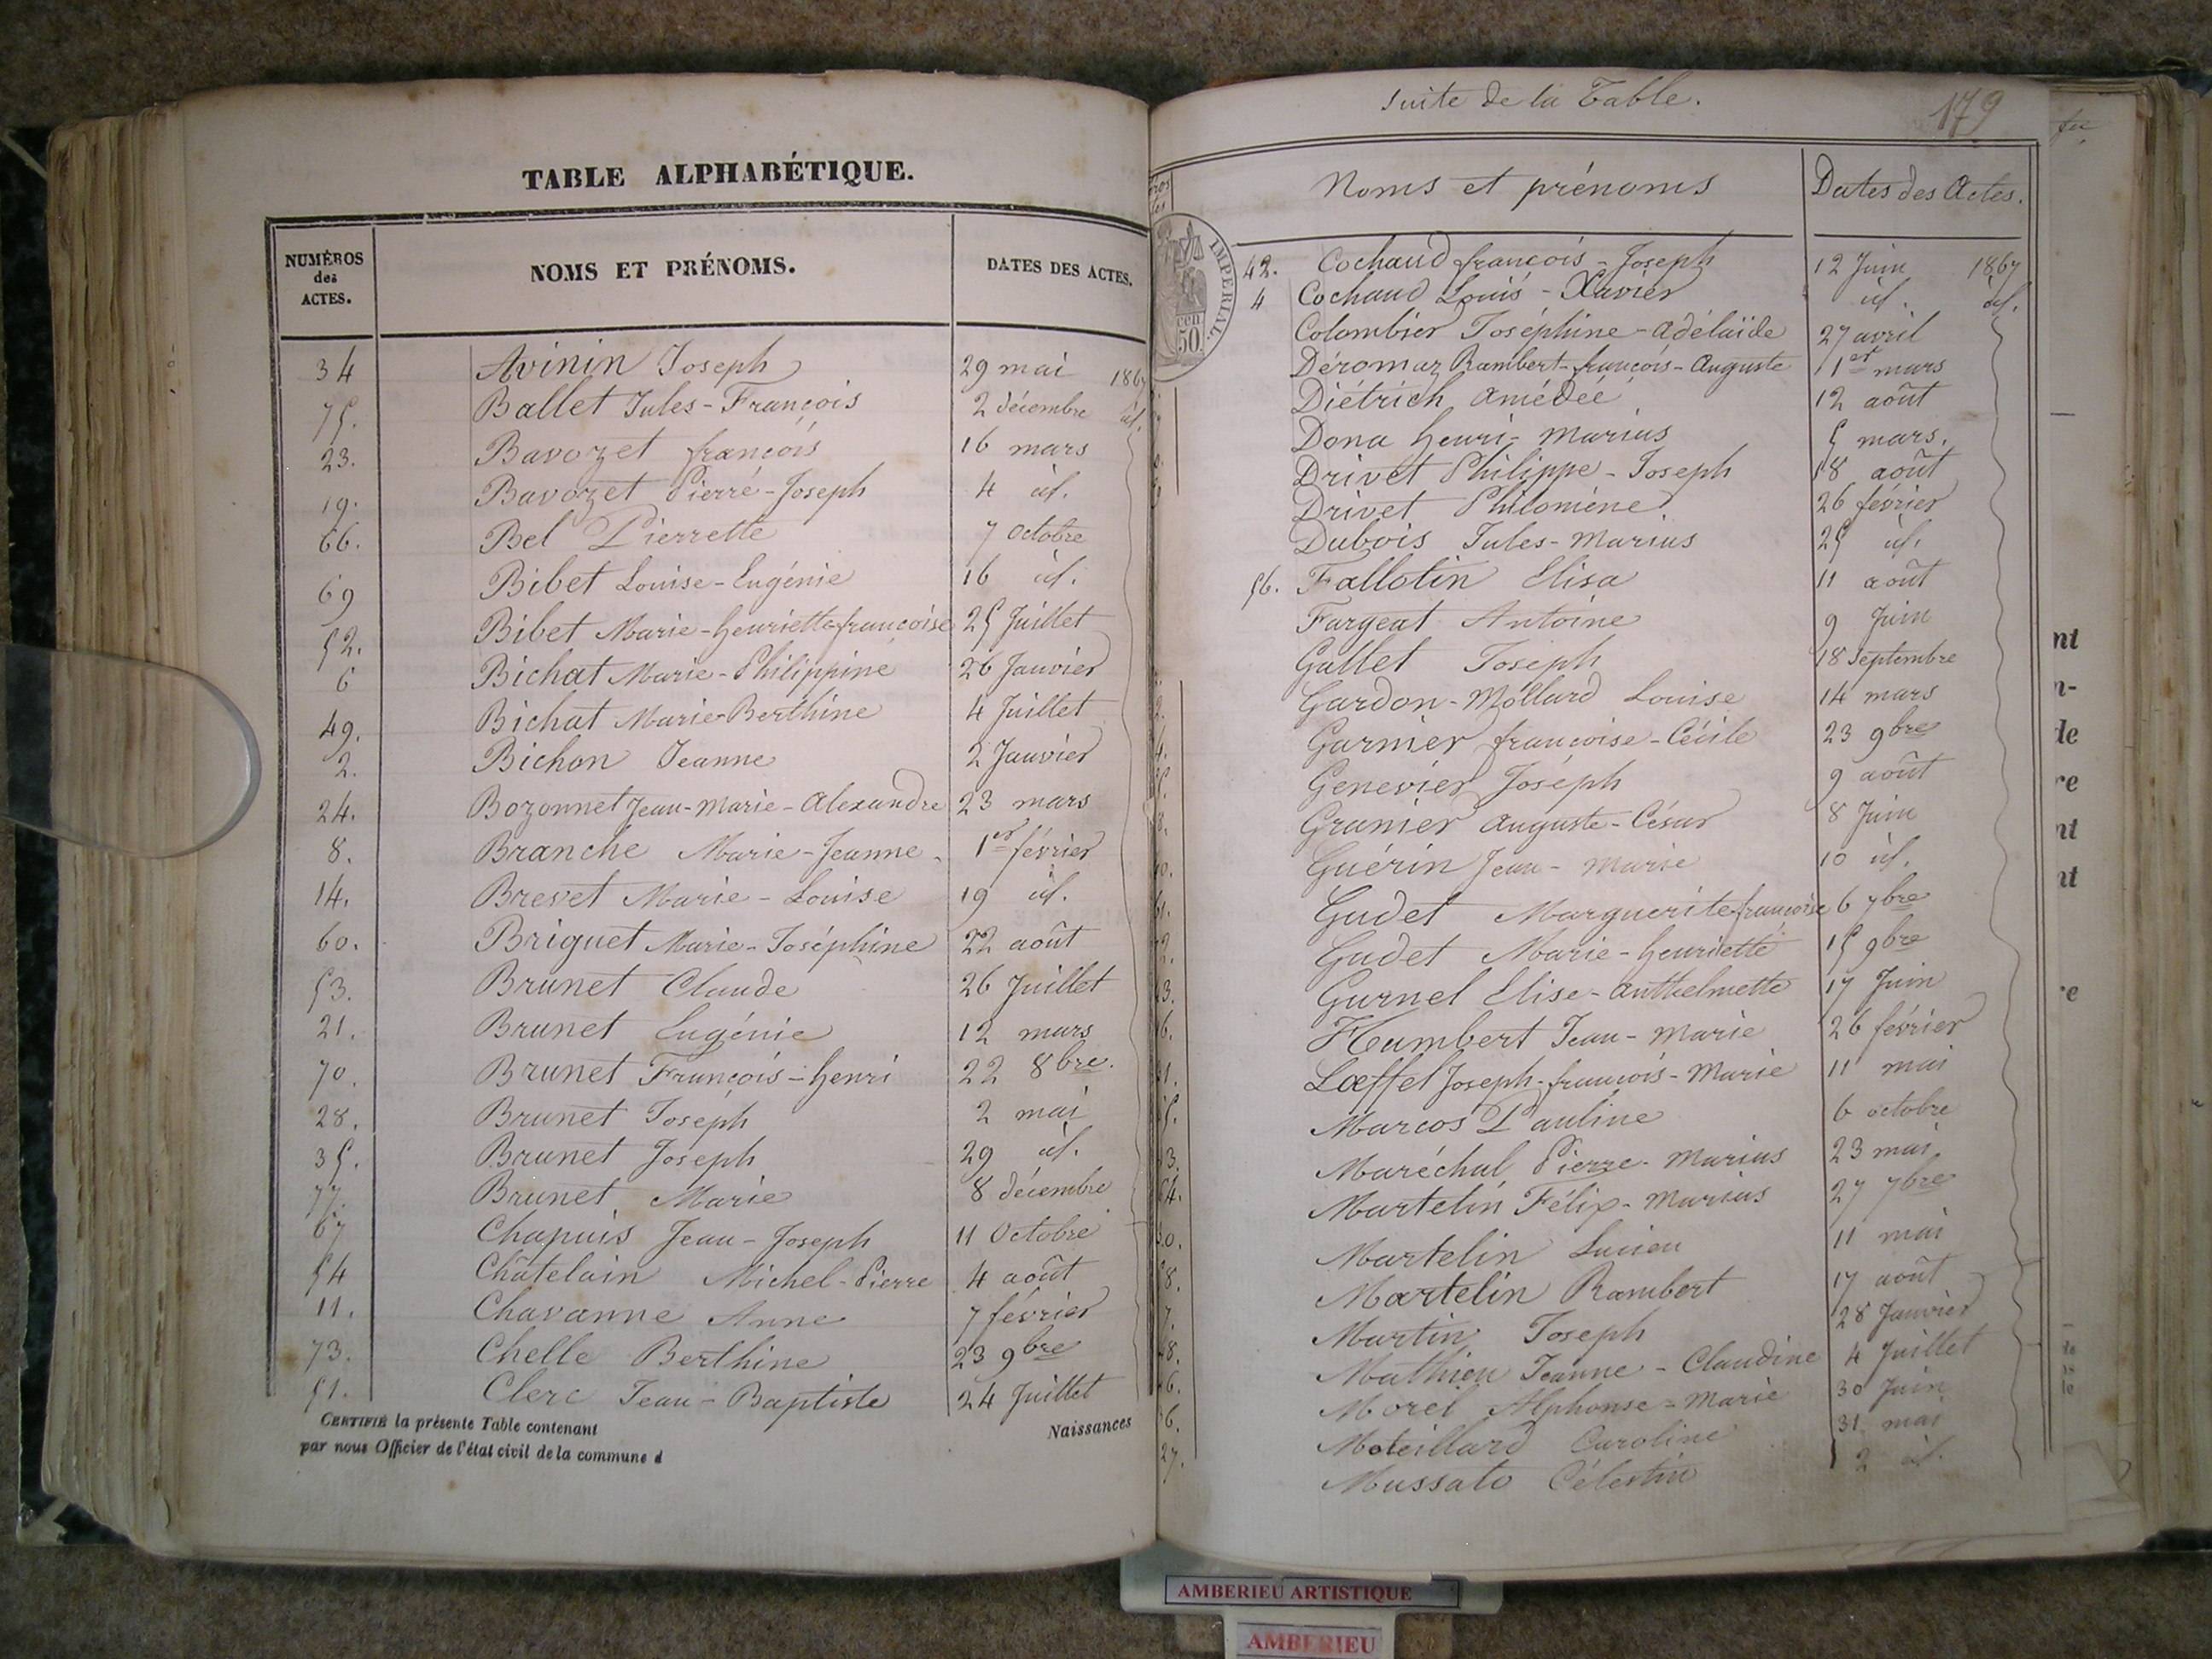 TABLE ALPHABÉTIQUE.
NUMÉROS des ACTES. NOMS ET PRÉNOMS. DATES DES ACTES.
34 Avinin Joseph 29 mai 1867
75. Ballet Jules-François 2 décembre id.
23. Bavozet françois 16 mars
19. Bavozet Pierre-Joseph 4 id.
66. Bel Pierrette 7 octobre
69 Bibet Louise-Eugénie 16 id.
52. Bibet Marie-henriette françoise 25 Juillet
6 Bichat Marie-Philippine 26 Janvier
49. Bichat Marie-Berthine 4 Juillet
2. Bichon Jeanne 2 Janvier
24. Bozonnet Jean-marie-Alexandre 23 mars
8. Branche Marie-Jeanne 1er février
14. Brevet Marie-Louise 19 id.
60. Briguet Marie-Joséphine 22 août
53. Brunet Claude 26 Juillet
21. Brunet Eugénie 12 mars
70. Brunet François-henri 22 8bre.
28. Brunet Joseph 2 mai
35. Brunet Joseph 29 id.
77. Brunet Marie 8 décembre
67 Chapuis Jean-Joseph 11 Octobre
54 Châtelain Michel-Pierre 4 août
11. Chavanne Anne 7 février
73. Chelle Berthine 23 9bre
51. Clerc Jean-Baptiste 24 Juillet
CERTIFIÉ la présente Table contenant Naissances
par nous Officier de l'état civil de la commune d
Suite de la Table. 179
Noms et prénoms Dates des Actes.
IMPERIAL.
50
42. Cochaud françois-Joseph 12 Juin 1867
4 Cochaud Louis-Xavier id. id.
Colombier Joséphine-Adélaïde 27 avril
Déromaz Rambert-françois-Auguste 1er mars
Diétrich Amédée 12 août
Dona henri-marius 5 mars.
Drivet Philippe-Joseph 18 août
Drivet Philomène 26 février
Dubois Jules-Marius 25 id.
56. Fallotin Elisa 11 août
Fargeat Antoine 9 Juin
Gallet Joseph 18 Septembre
Gardon-Mollard Louise 14 mars
Garnier françoise-Cécile 23 9bre
Genevier Joseph 9 août
Granier Auguste-César 8 Juin
Guérin Jean-Marie 10 id.
Gudet Marguerite françoise 6 7bre
Gudet Marie-henriette 15 9bre
Gurnel Elise-Anthelmette 17 Juin
Humbert Jean-Marie 26 février
Lœffel Joseph-françois-Marie 11 mai
Marcos Pauline 6 octobre
Maréchal Pierre-Marius 23 mai
Martelin Félix-Marius 27 7bre
Martelin Lucien 11 mai
Martelin Rambert 17 août
Martin Joseph 28 Janvier
Mathieu Jeanne-Claudine 4 Juillet
Morel Alphonse-Marie 30 Juin
Caroline 31 mai
27. Mussato Célestin 2 id.
AMBERIEU ARTISTIQUE
AMBERIEU